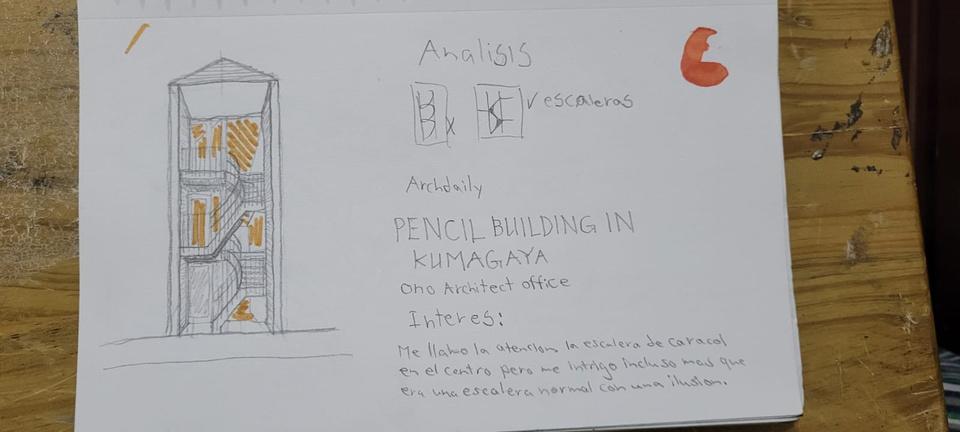 Analisis
escaleras
Archdaily
PENCIL BUILDING IN
KUMAGAYA
Ono Architect office
Interes:
Me llamo la atencion la escalera de caracol
en el centro pero me intrigo incluso mas que
era una escalera normal con una ilusion.